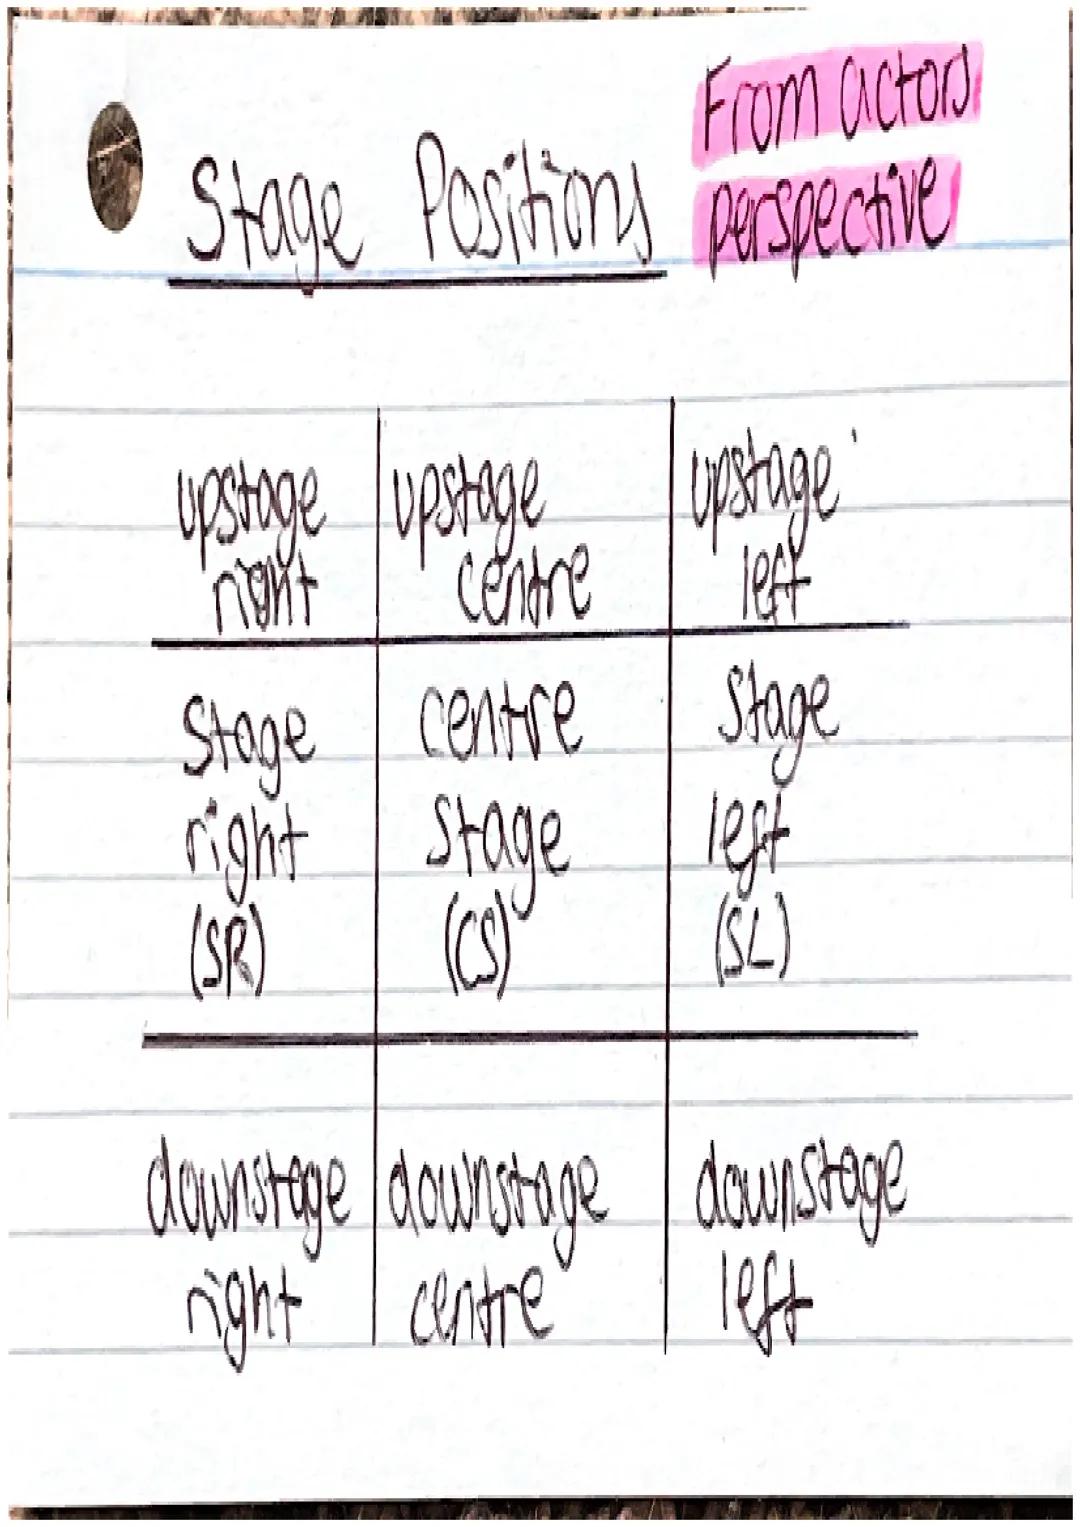 Stage Positions
From actors
perspective
upstage
right
upstage
centre
upstage
left
Stage
right
(SR)
centre
stage
(CS)
stage
left
(SL)
downstage
right
downstage
centre
downstage
left